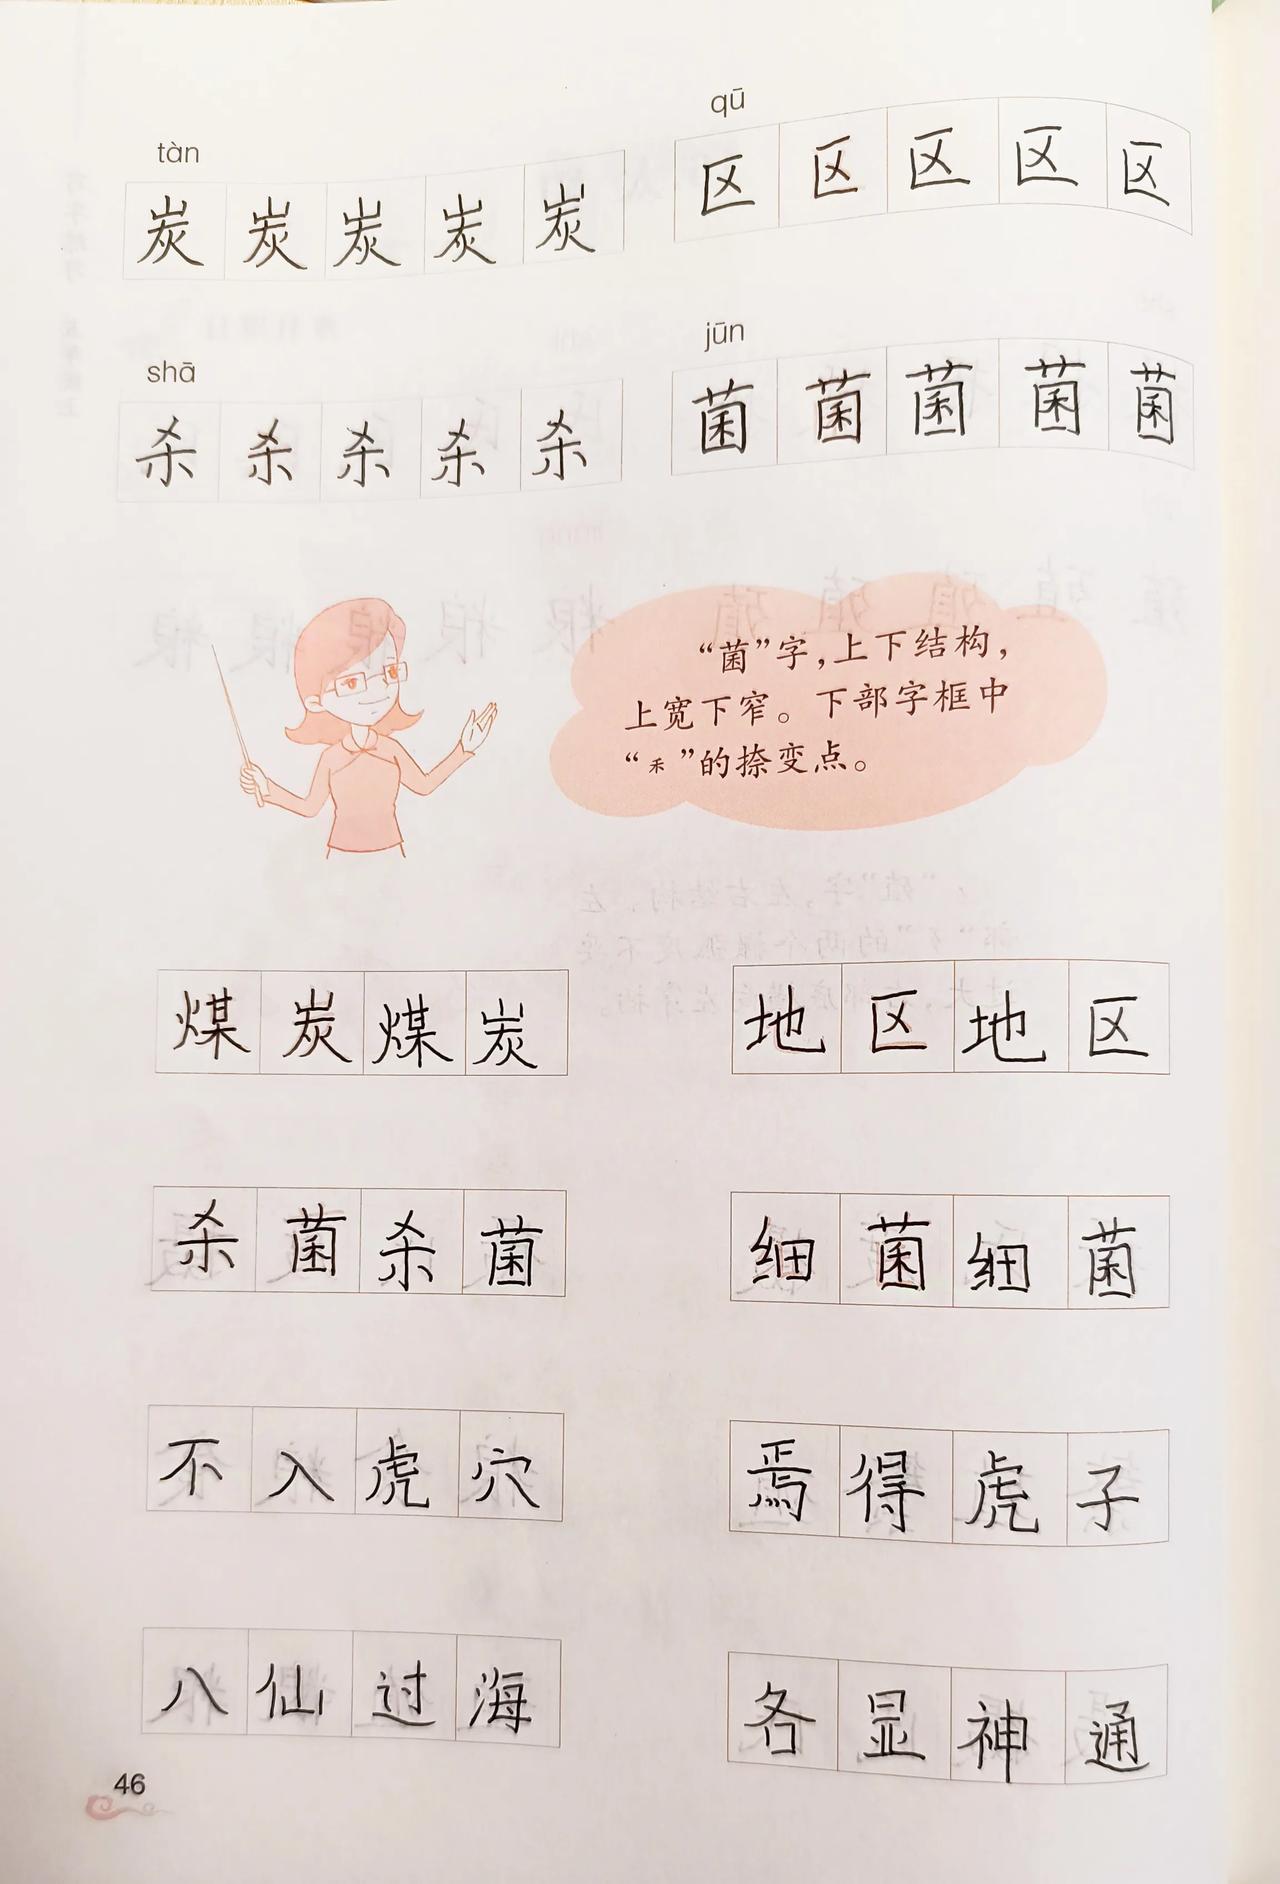 tàn
qū
炭炭炭炭炭
区区区区区
shā
jūn
杀杀杀杀杀
菌菌菌菌菌
“菌”字，上下结构，
上宽下窄。下部字框中
“禾”的捺变点。
煤炭煤炭
地区地区
杀菌杀菌
细菌细菌
不入虎穴
焉得虎子
八仙过海
各显神通
46